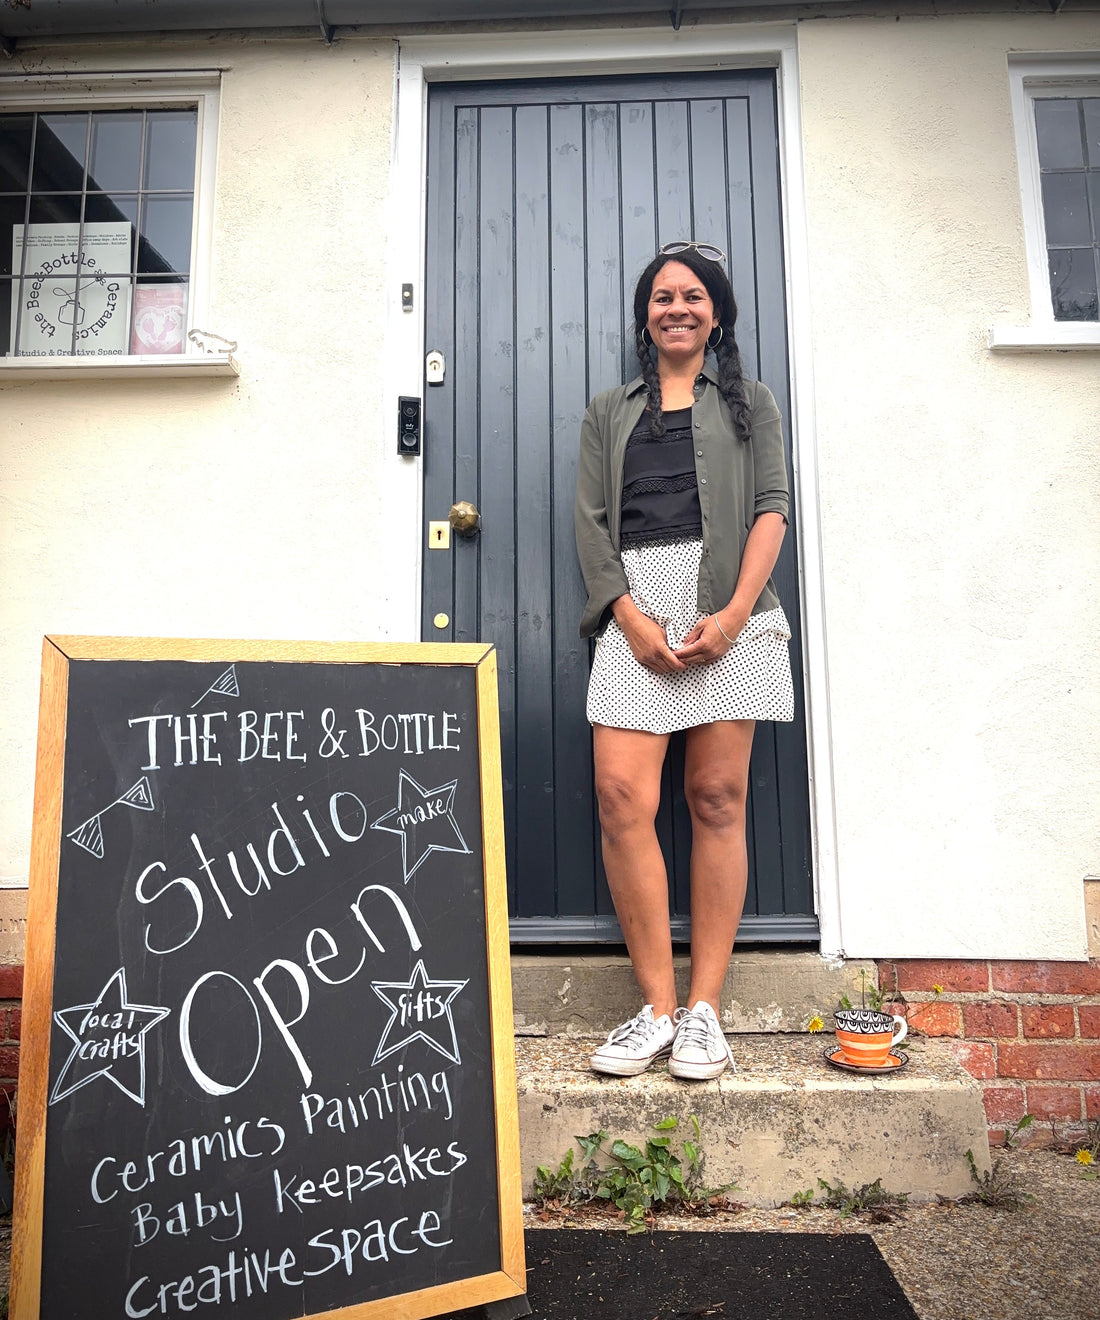 the Bee & Bottle Ceramics
Studio & Creative Space
THE BEE & BOTTLE
Studio
make
Open
local
Crafts
Gifts
Ceramics Painting
Baby keepsakes
Creative Space